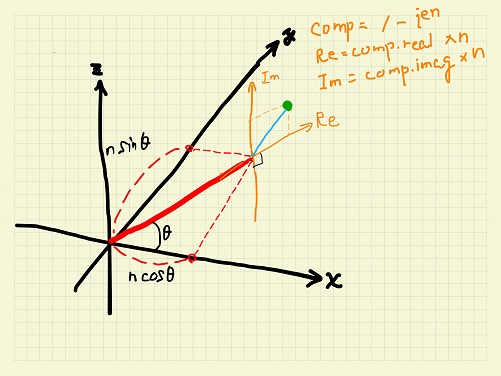 comp = 1 - jen
Re = comp.real × n
Im = comp.imag × n
y
z
Im
Re
n sinθ
θ
n cosθ
x